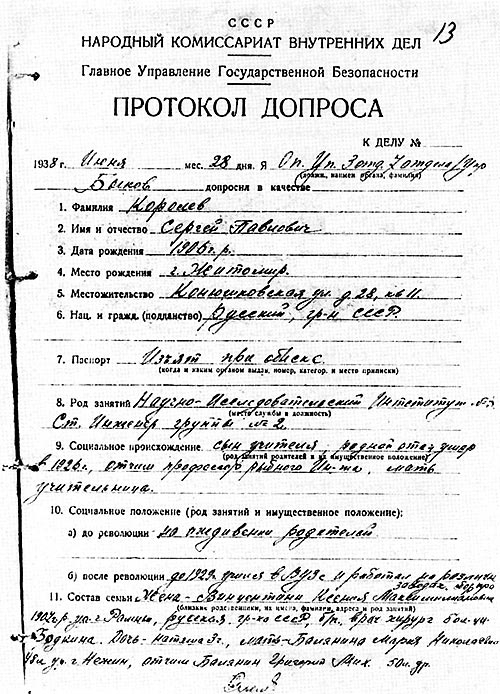 13
СССР
НАРОДНЫЙ КОМИССАРИАТ ВНУТРЕННИХ ДЕЛ
Главное Управление Государственной Безопасности
ПРОТОКОЛ ДОПРОСА
К ДЕЛУ №
1938 г. Июня мес. 28 дня. Я Оп. Уп. 3 отд. 7 отдела
(должн., наимен. органа, фамилия)
Быков допросил в качестве
1. Фамилия Королев
2. Имя и отчество Сергей Павлович
3. Дата рождения 1906 г.р.
4. Место рождения г. Житомир.
5. Местожительство Конюшковская ул. д. 28, кв. 11.
6. Нац. и гражд. (подданство) Русский, гр-н СССР.
7. Паспорт Изъят при обыске
(когда и каким органом выдан, номер, категор. и место приписки)
8. Род занятий Научно-Исследовательский Институт № 3
(место службы и должность)
Ст. Инженер группы № 2.
9. Социальное происхождение сын учителя, родной отец умер
(род занятий родителей и их имущественное положение)
в 1926 г., отчим профессор рыбного Ин-та, мать
учительница.
10. Социальное положение (род занятий и имущественное положение):
а) до революции на иждивении родителей
б) после революции до 1929 учился в ВУЗе и работал на различн
заводах.
11. Состав семьи Жена - Винцентини Ксения Максимилиановна
(близкие родственники, их имена, фамилии, адреса и род занятий)
русская, гр-ка СССР, врач хирург бол-цы
Боткина. Дочь - Наташа 3 г., мать - Баланина Мария Николаевна
г. Нежин, отчим Баланин Григорий Мих.